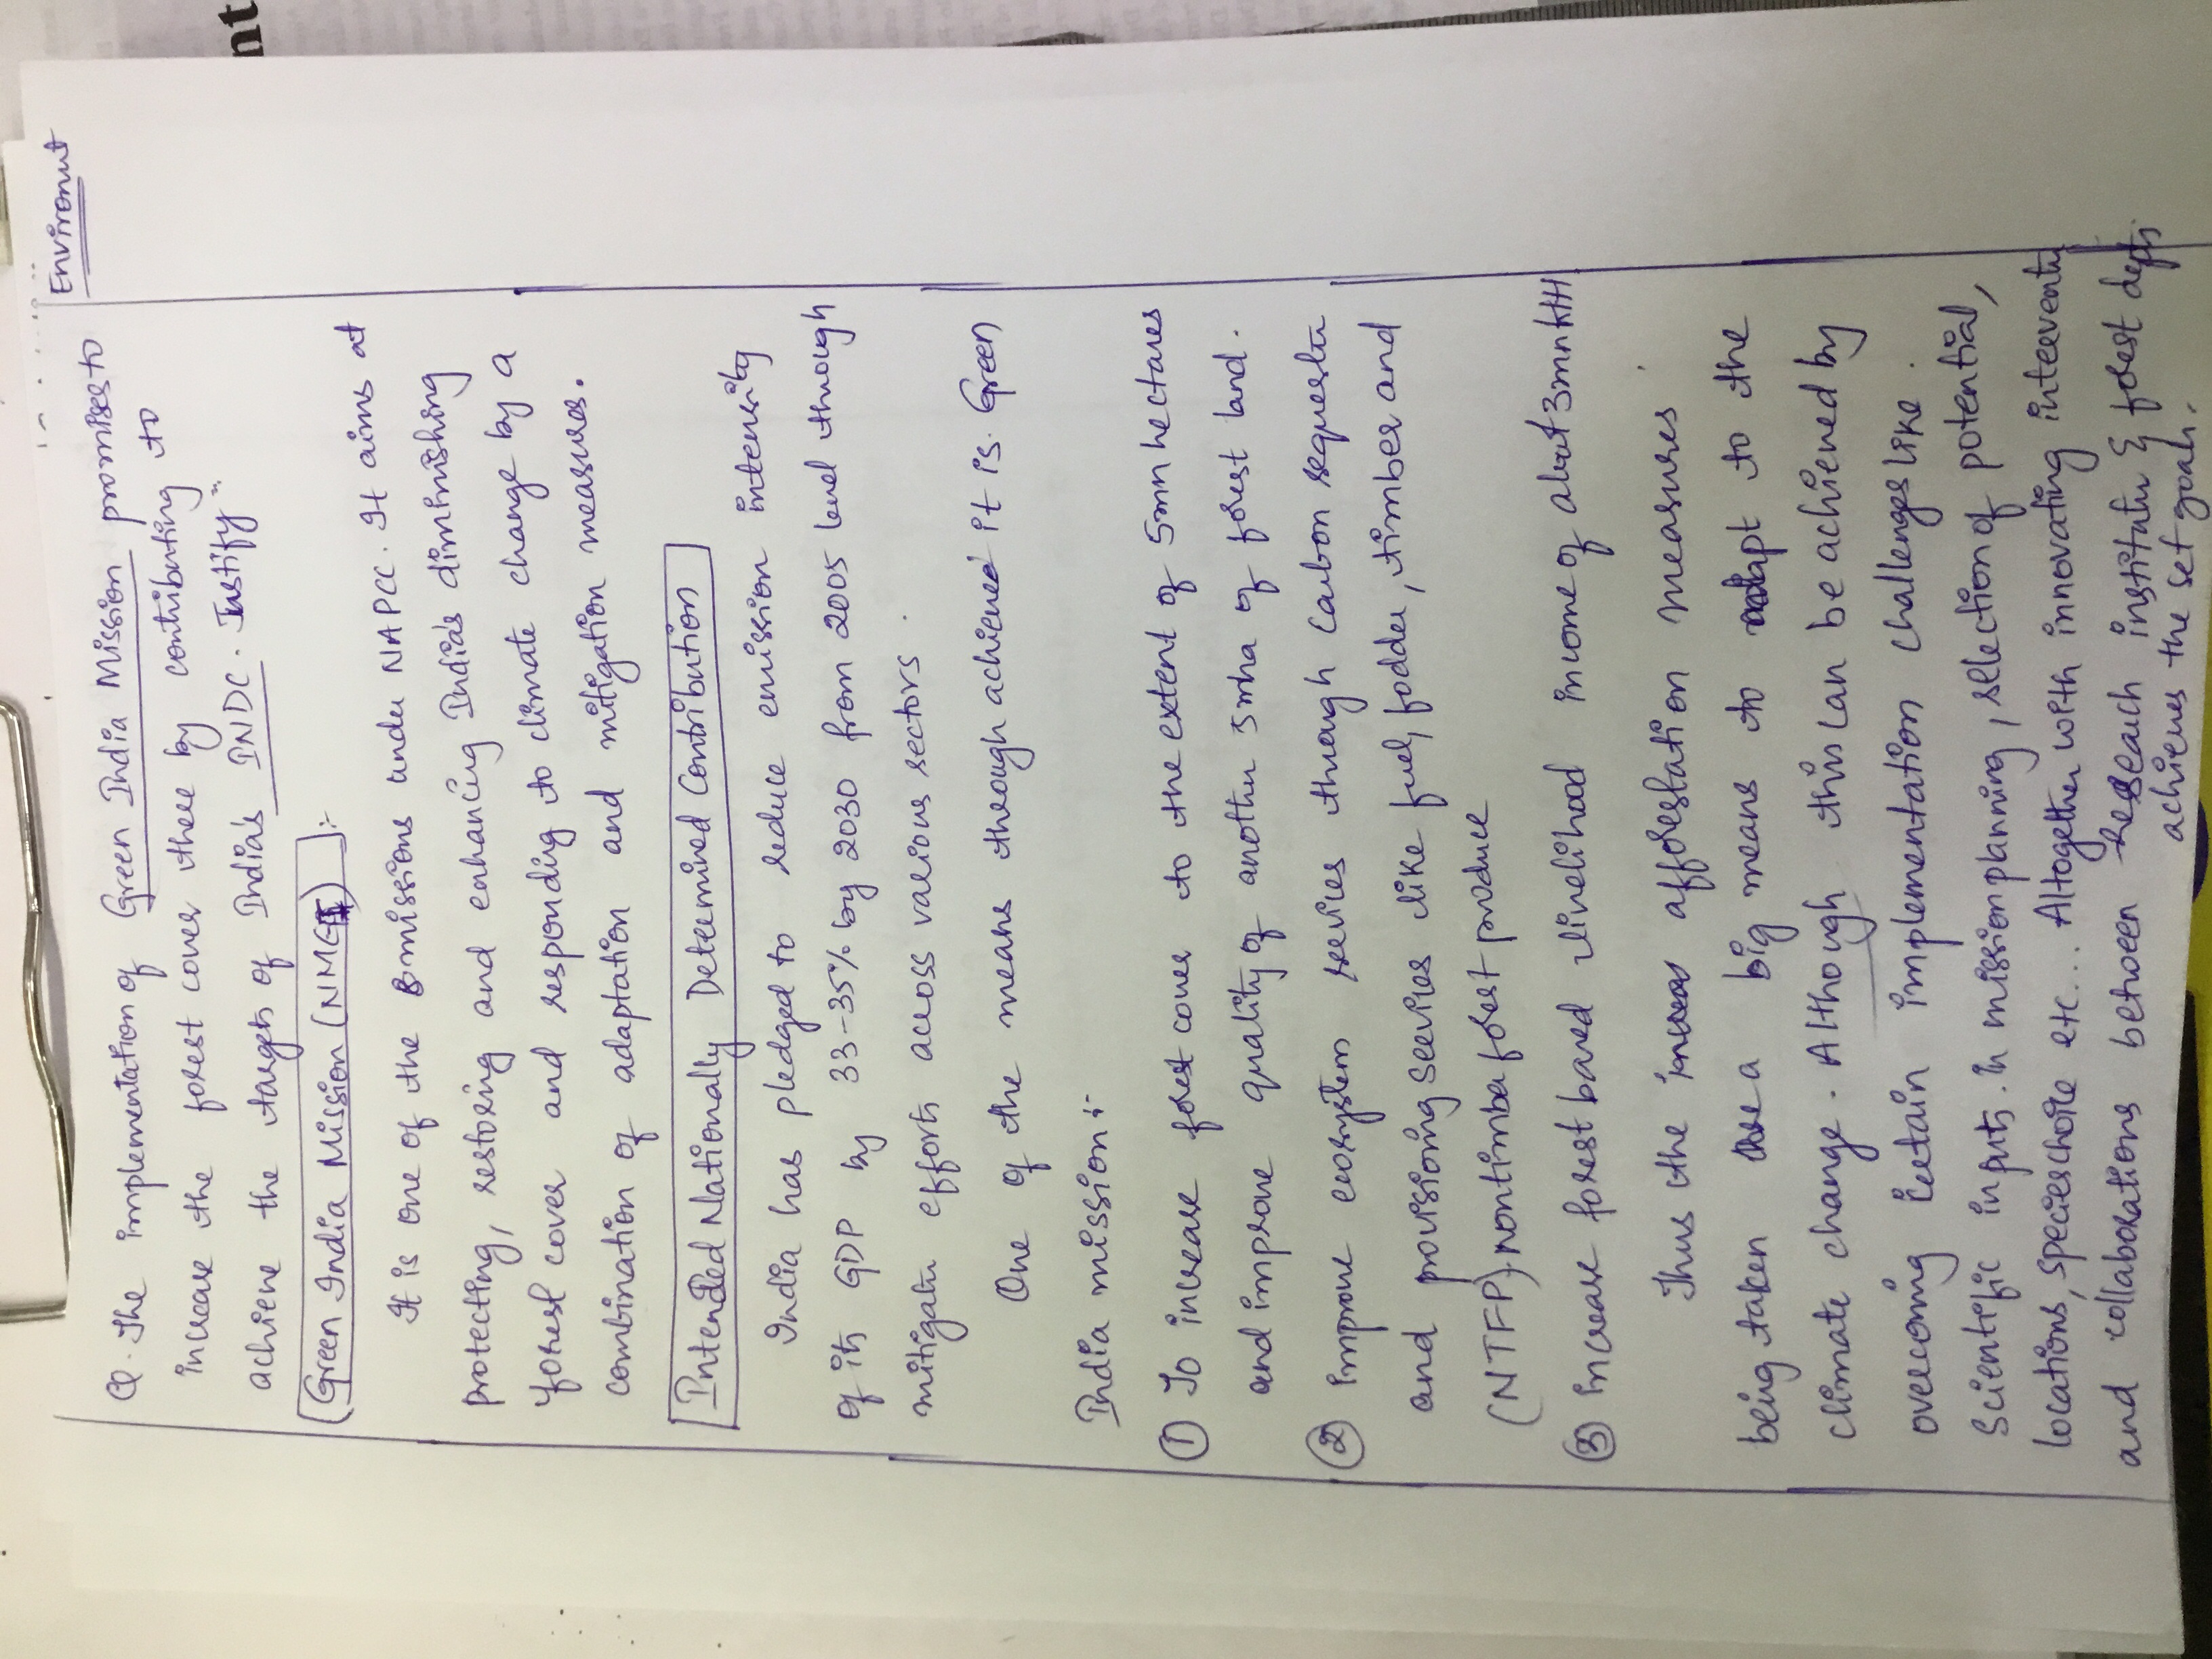 nt
Environmt
Q. The implementation of Green India Mission promises to
increase the forest cover there by contributing to
achieve the targets of India's INDC. Justify.
Green India Mission (NMG) :-
It is one of the 8 missions under NAPCC. It aims at
protecting, restoring and enhancing India's diminishing
forest cover and responding to climate change by a
combination of adaptation and mitigation measures.
Intended Nationally Determined Contribution
India has pledged to reduce emission intensity
of its GDP by 33-35% by 2030 from 2005 level through
mitigatn efforts across various sectors.
One of the means through achieved it is Green
India mission :-
① To increase forest cover to the extent of 5mn hectares
and improve quality of another 5mha of forest land.
② Improve ecosystem services through Carbon sequestn
and provisioning services like fuel, fodder, timber and
(NTFP) nontimber forest produce
③ Increase forest based livelihood income of about 3mn HH
Thus the afforestation measures
being taken are a big means to adapt to the
climate change. Although this can be achieved by
overcoming certain implementation challenges like
Scientific inputs. In mission planning, selection of potential,
locations, species choice etc... Altogether with innovating interventn
and collaborations between Reseach institutn & forest depts
achieves the set goals.